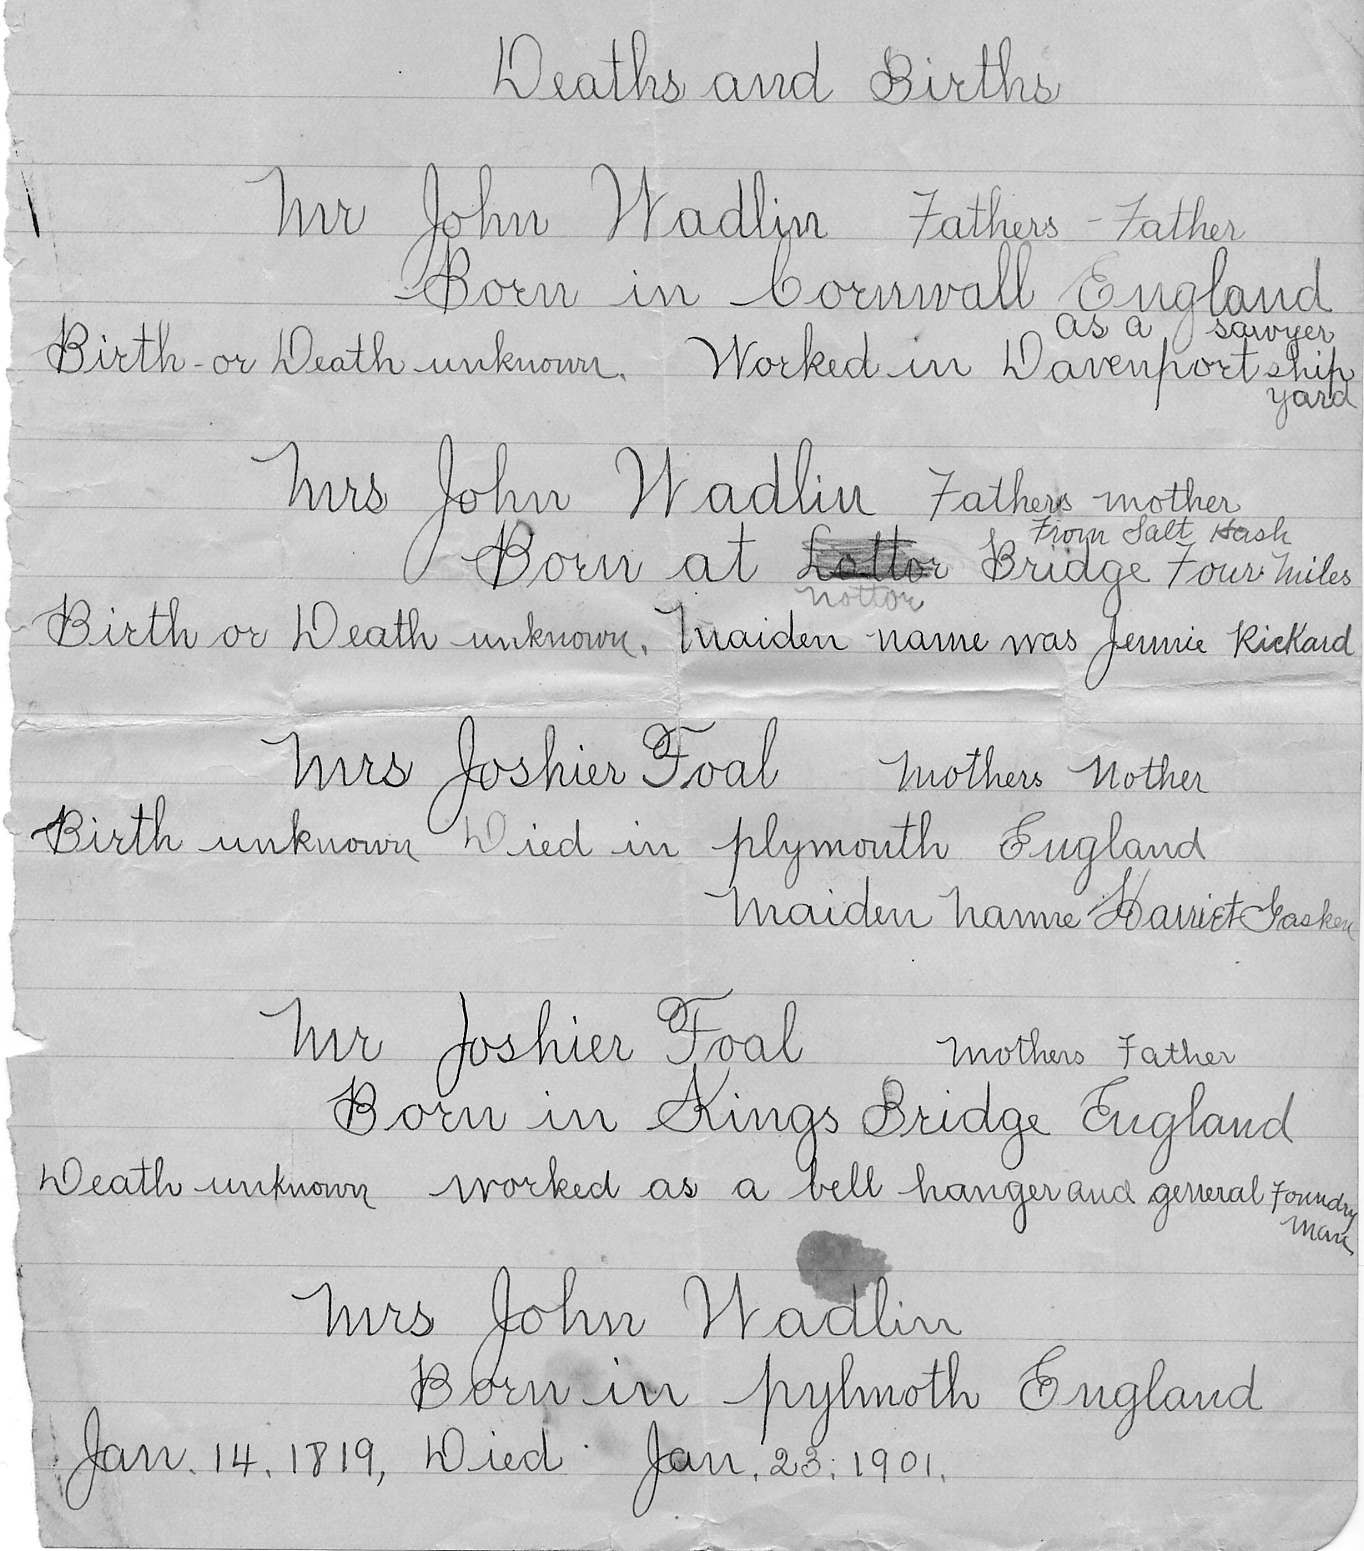 Deaths and Births
Mr John Wadlin Fathers - Father
Born in Cornwall England
as a sawyer
Birth or Death unknown. Worked in Davenport ship
yard
Mrs John Wadlin Fathers mother
From Salt Hash
Born at Lottor Bridge Four Miles
Nottor
Birth or Death unknown. Maiden name was Jennie Rickard
Mrs Joshier Foal Mothers Mother
Birth unknown Died in plymouth England
Maiden name Harriet Gasken
Mr Joshier Foal Mothers Father
Born in Kings Bridge England
Death unknown worked as a bell hanger and general Foundry
man
Mrs John Wadlin
Born in pylmoth England
Jan. 14. 1819, Died Jan. 23. 1901.